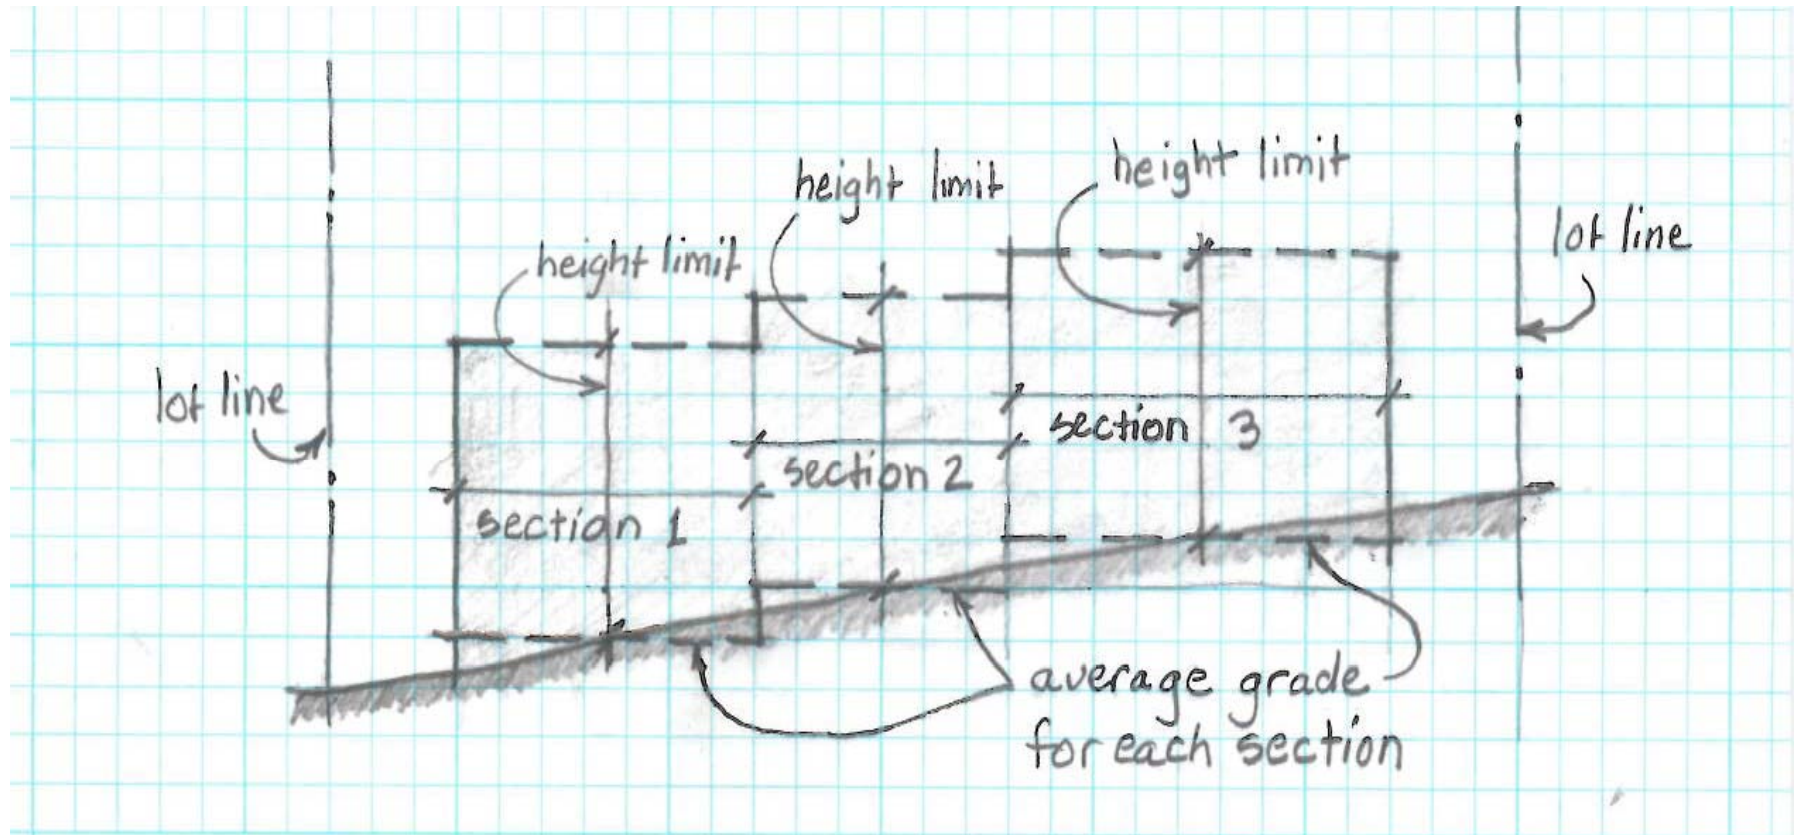 height limit
height limit
height limit
lot line
lot line
section 3
section 2
section 1
average grade
for each section